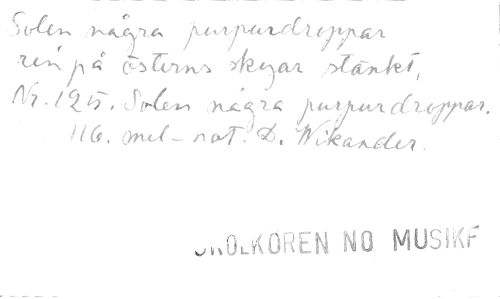 Solen några purpurdroppar
ren på österns skyar stänkt,
Nr. 125. Solen några purpurdroppar.
116. mel-not. D. Wikander.
KOREN NO MUSIKF